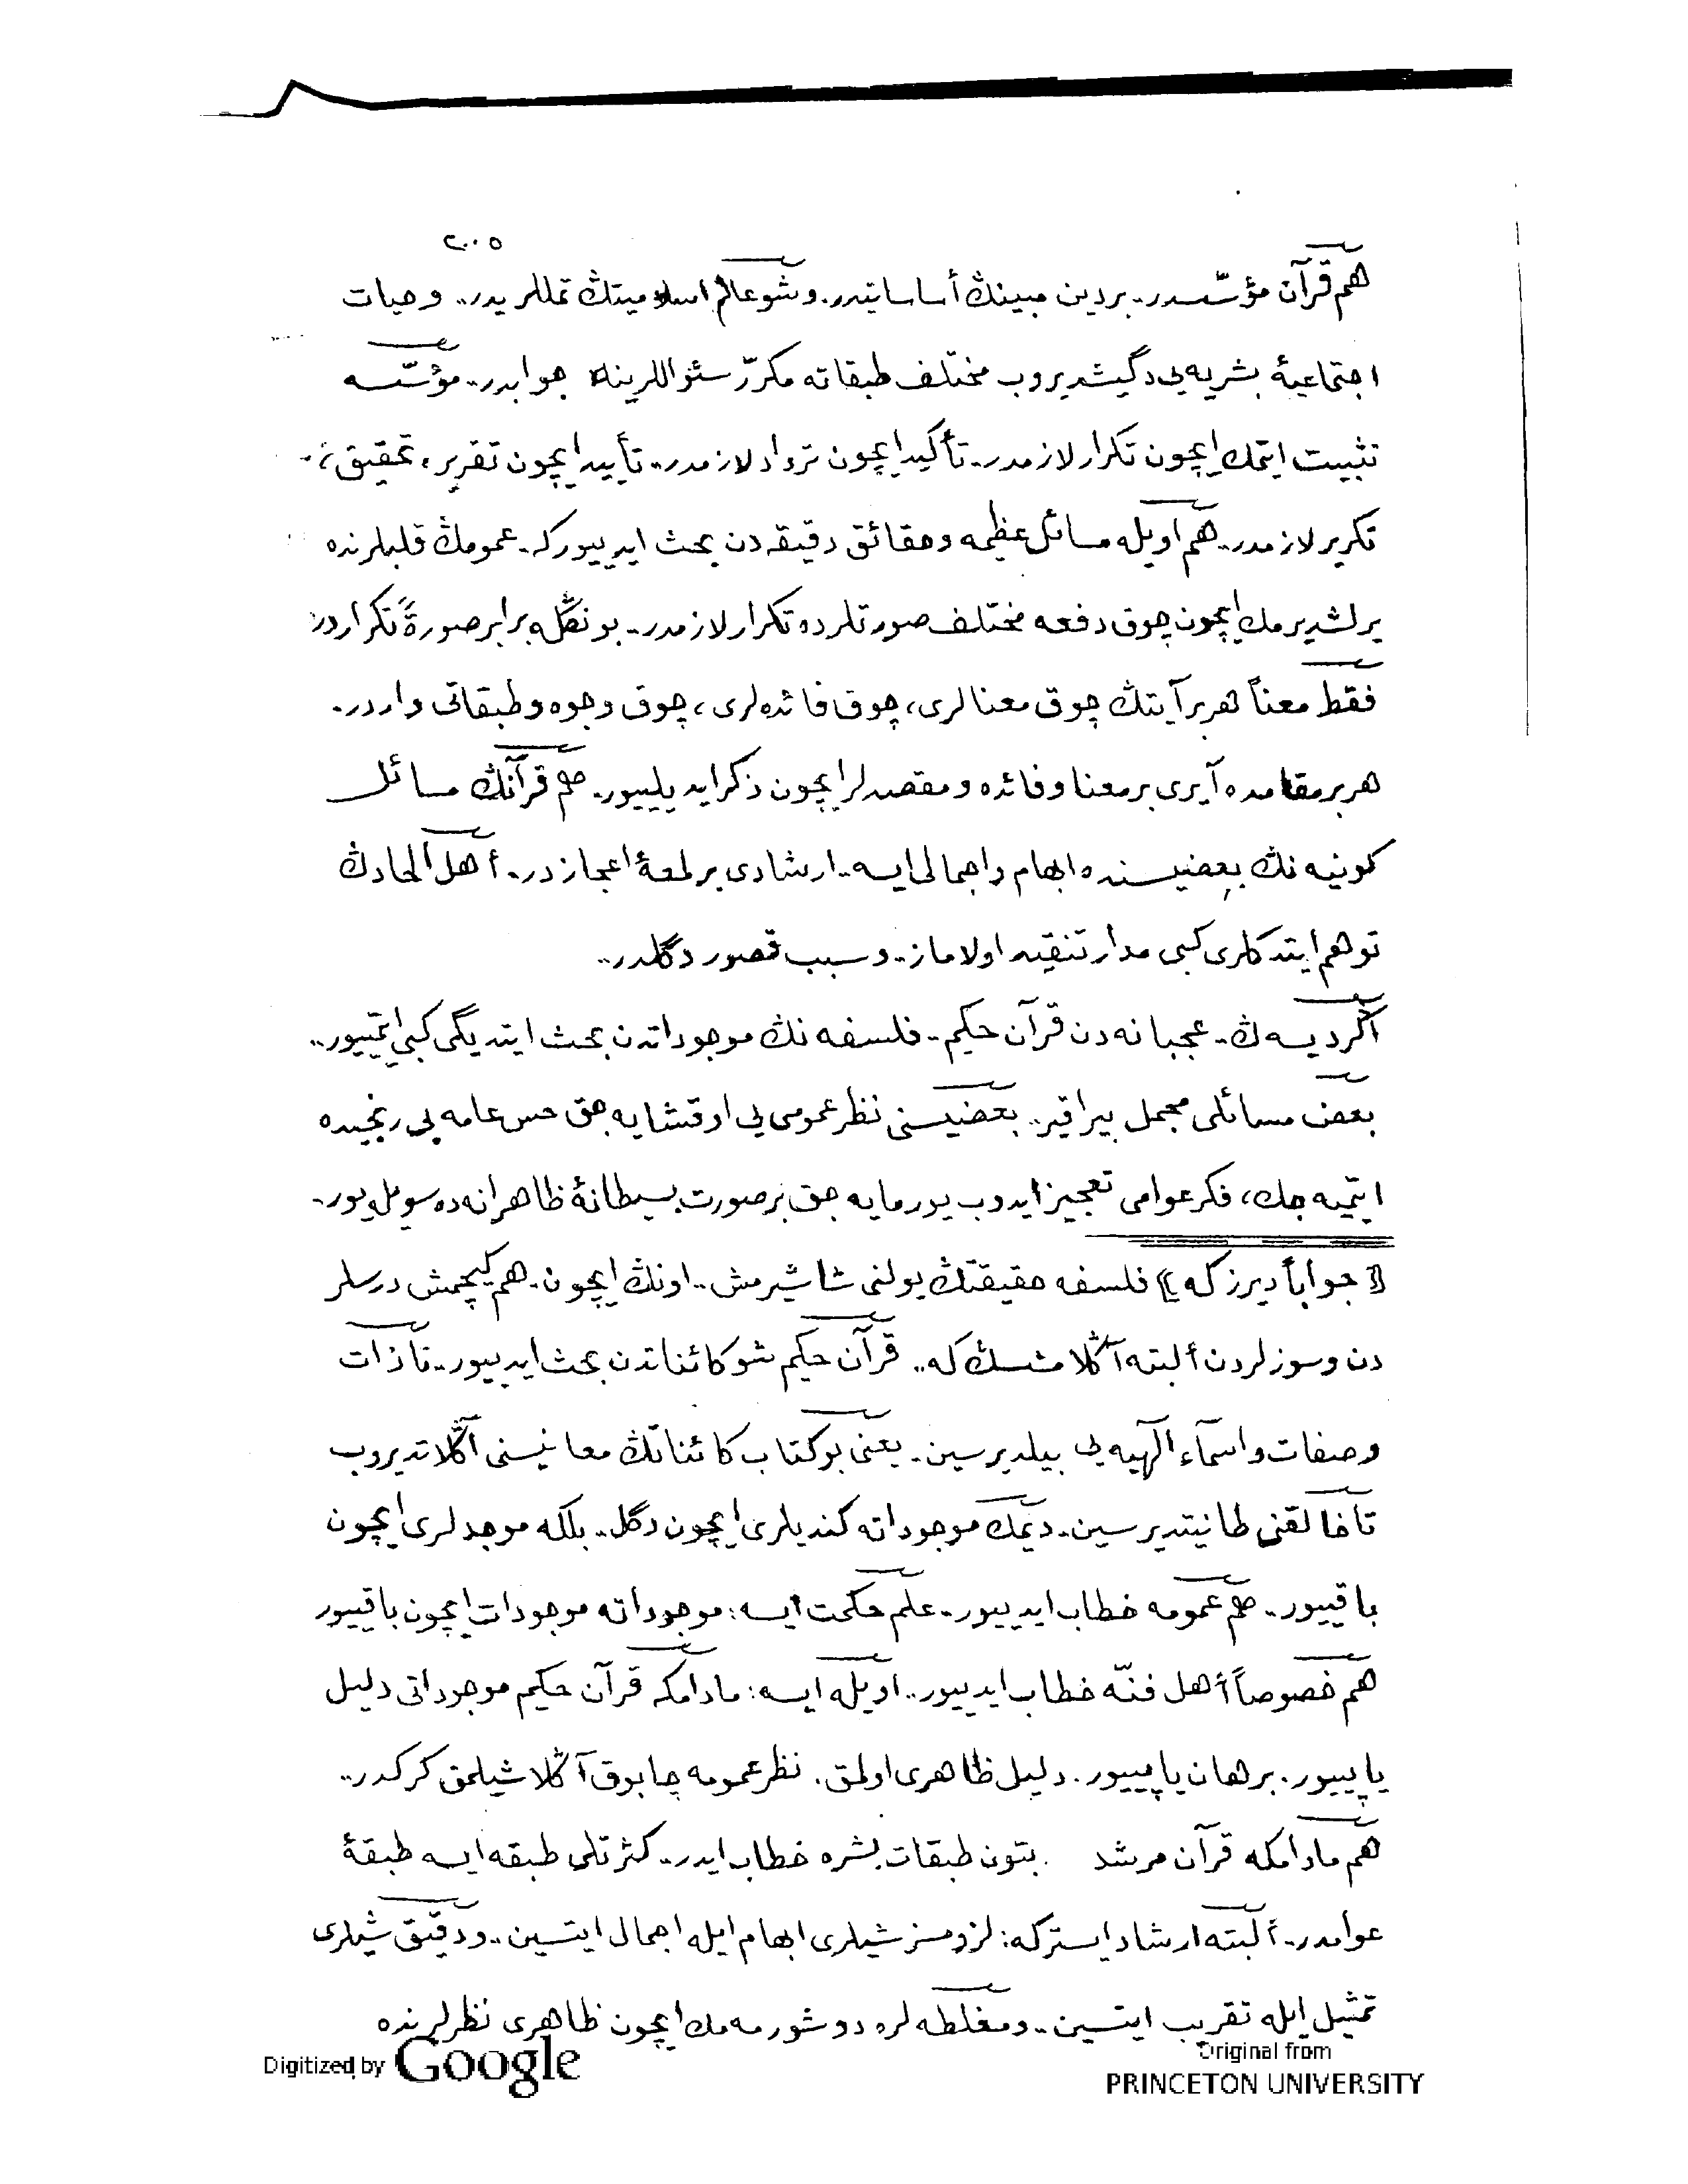 ٢٠٠٥
هم قرآن مؤسّسدر. بر دين مبينڭ أساساتيدر. و شو عالم اسلاميتڭ تمللريدر.. و حيات
اجتماعيۀ بشريه‌يى دگيشديروب مختلف طبقاته مكرّر سئواللرينه جوابدر.. مؤسّسه
تثبيت ايتمك ايچون تكرار لازمدر. تأكيد ايچون ترداد لازمدر. تأييد ايچون تقرير، تحقيق،
تكرير لازمدر. هم اويله مسائل عظيمه و حقائق دقيقه‌دن بحث ايدييور كه. عمومڭ قلبلرنده
يرلشديرمك ايچون چوق دفعه مختلف صورتلرده تكرار لازمدر. بونڭله برابر صورةً تكراردر
فقط معناً هر بر آيتڭ چوق معنالرى، چوق فائده‌لرى، چوق وجوه و طبقاتى واردر.
هر بر مقامده آيرى بر معنا و فائده و مقصدلر ايچون ذكر ايديلييور. هم قرآنڭ مسائل
كونيه‌نڭ بعضيسنده ابهام و اجمالى ايسه.. ارشادى بر لمعۀ اعجازدر. أهل الحادڭ
توهم ايتدكلرى كبى مدار تنقيد اولاماز.. و سبب قصور دگلدر..
أگر ديسه‌ڭ. عجبا نه‌دن قرآن حكيم. فلسفه‌نڭ موجوداتدن بحث ايتديگى كبى ايتمييور..
بعض مسائلى مجمل بيراقير.. بعضيسنى نظر عمومى‌يى اوقشايه‌جق حس عامه‌يى رنجيده
ايتميه‌جك، فكر عوامى تعجيز ايدوب يورمايه‌جق بر صورت بسيطانۀ ظاهرانه‌ده سويله‌يور.
﴿ جواباً ديرز كه ﴾ فلسفه حقيقتڭ يولنى شاشيرمش.. اونڭ ايچون. هم گيچمش درسلر
دن و سوزلردن ألبته آڭلامشسڭ كه.. قرآن حكيم شو كائناتدن بحث ايدييور. تا ذات
و صفات و اسمآء الٓهيه‌يى بيلديرسين. يعنى بو كتاب كائناتڭ معانيسنى آڭلاتديروب
تا خالقنى طانيتديرسين. ديمك موجوداته كنديلرى ايچون دگل.. بلكه موجدلرى ايچون
باقييور. هم عمومه خطاب ايدييور. علم حكمت ايسه: موجوداته موجودات ايچون باقييور
هم خصوصاً أهل فنّه خطاب ايدييور.. اويله ايسه: مادامكه قرآن حكيم موجوداتى دليل
ياپييور. برهان ياپييور. دليل ظاهرى اولمق. نظر عمومه چابوق آڭلاشيلمق گركدر..
هم مادامكه قرآن مرشد بتون طبقات بشره خطاب ايدر. كثرتلى طبقه ايسه طبقۀ
عوامدر. ألبته ارشاد ايستر كه: لزومسز شيلرى ابهام ايله اجمال ايتسين.. و دقيق شيلرى
تمثيل ايله تقريب ايتسين.. و مغلطه‌لره دوشورمه‌مك ايچون ظاهرى نظرلرنده
Digitized by Google
Original from
PRINCETON UNIVERSITY